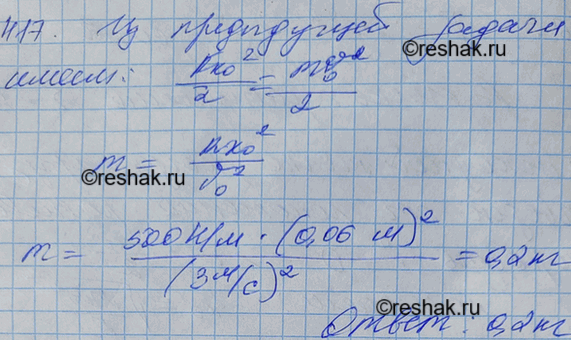 417. Из предыдущей задачи
имеем: kx₀²/2 = mϑ₀²/2
m = kx₀²/ϑ₀²
©reshak.ru
©reshak.ru
m = 500 Н/м · (0,06 м)²/(3 м/с)² = 0,2 кг
©reshak.ru
Ответ: 0,2 кг